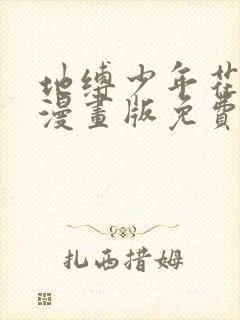 地缚少年花
漫畫版免費
扎西措姆